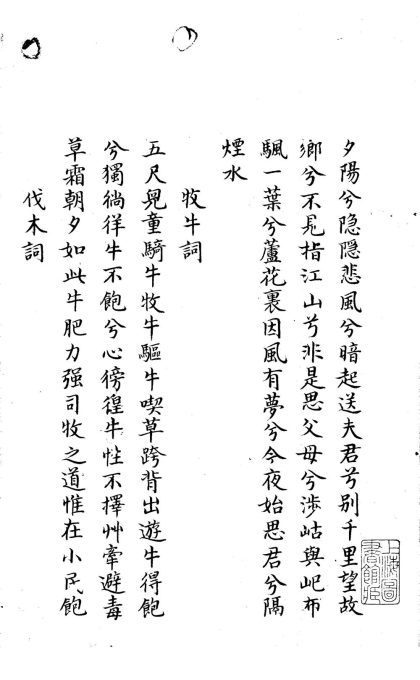 夕陽兮隐隠悲風兮暗起送夫君兮别千里望故
鄉兮不見指江山兮非是思父母兮涉岵與屺布
颿一葉兮蘆花裏因風有夢兮今夜始思君兮隔
煙水
牧牛詞
五尺兒童騎牛牧牛驅牛喫草跨背出遊牛得飽
兮獨徜徉牛不飽兮心徬徨牛性不擇艸牽避毒
草霜朝夕如此牛肥力强司牧之道惟在小民飽
伐木詞
上海圖
書館藏